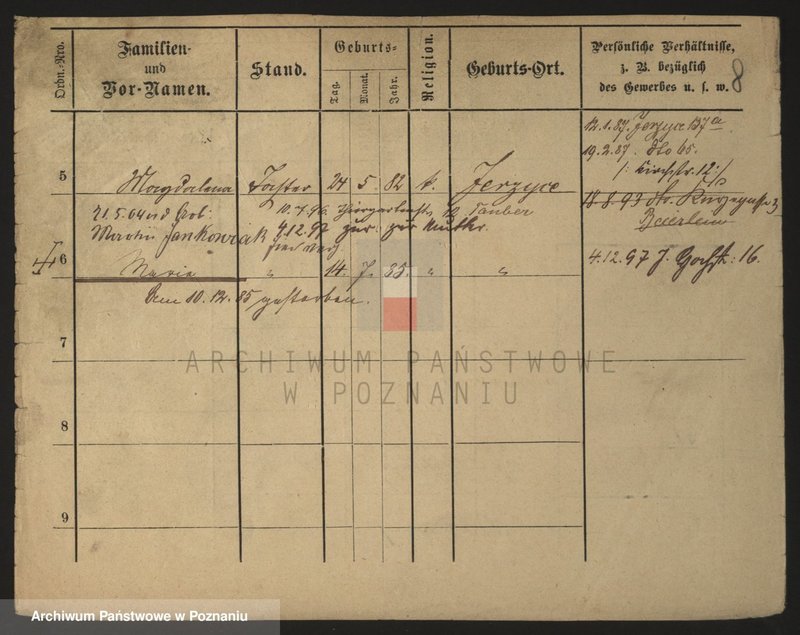 Ordn.-Nro.
Familien- und Vor-Namen.
Stand.
Geburts-
Tag.
Monat.
Jahr.
Religion.
Geburts-Ort.
Persönliche Verhältnisse,
z. B. bezüglich
des Gewerbes u. s. w.
8
12.1.87. Jerzyce 137a
19.2.87. dto 65.
/: Kirchstr. 12 :/
5 Magdalena Tochter 24 5. 82 k. Jerzyce
18.8.93 dto. 3
21.5.04 10.7.96. 12 Tauber
Jankowiak 4.12.97 zur. zur Mutter.
6 Maria " 14. 7. 85. " "
4.12.97 J. 16.
Am 10.12.85 gestorben.
7
8
9
ARCHIWUM PAŃSTWOWE
W POZNANIU
Archiwum Państwowe w Poznaniu